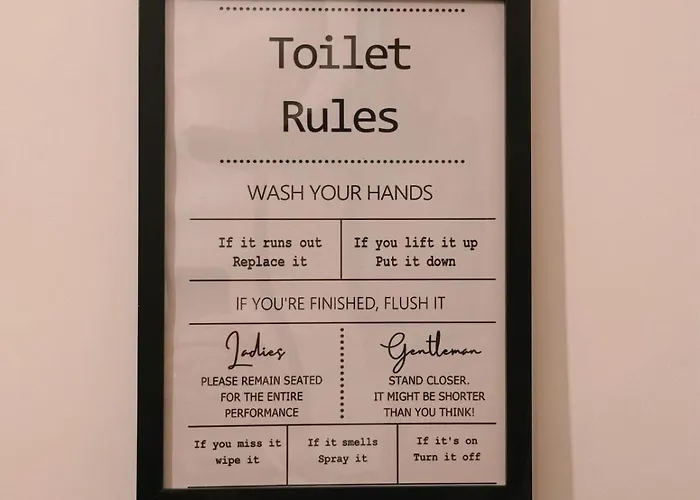 Toilet
Rules
WASH YOUR HANDS
If it runs out
Replace it
If you lift it up
Put it down
IF YOU'RE FINISHED, FLUSH IT
Ladies
PLEASE REMAIN SEATED
FOR THE ENTIRE
PERFORMANCE
Gentleman
STAND CLOSER.
IT MIGHT BE SHORTER
THAN YOU THINK!
If you miss it
wipe it
If it smells
Spray it
If it's on
Turn it off